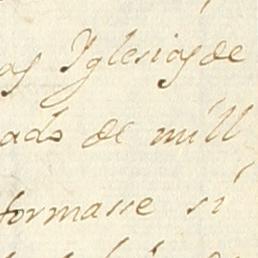 as Yglesias de
ado de mill
formasse si